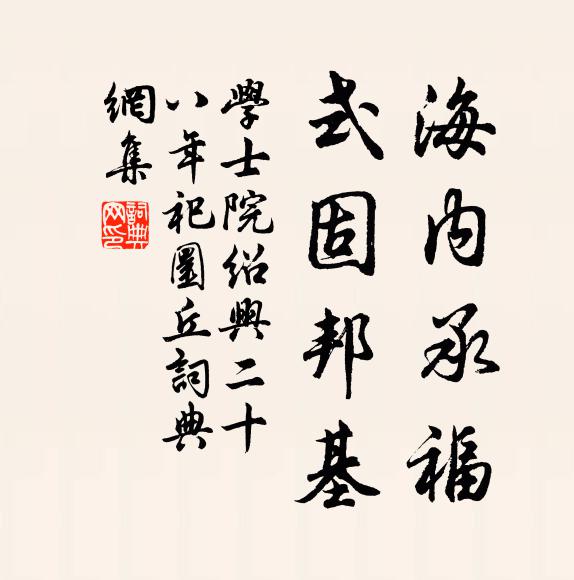 海内承福
式固邦基
學士院紹興二十
八年祀圜丘詞典
網集
詞典网印